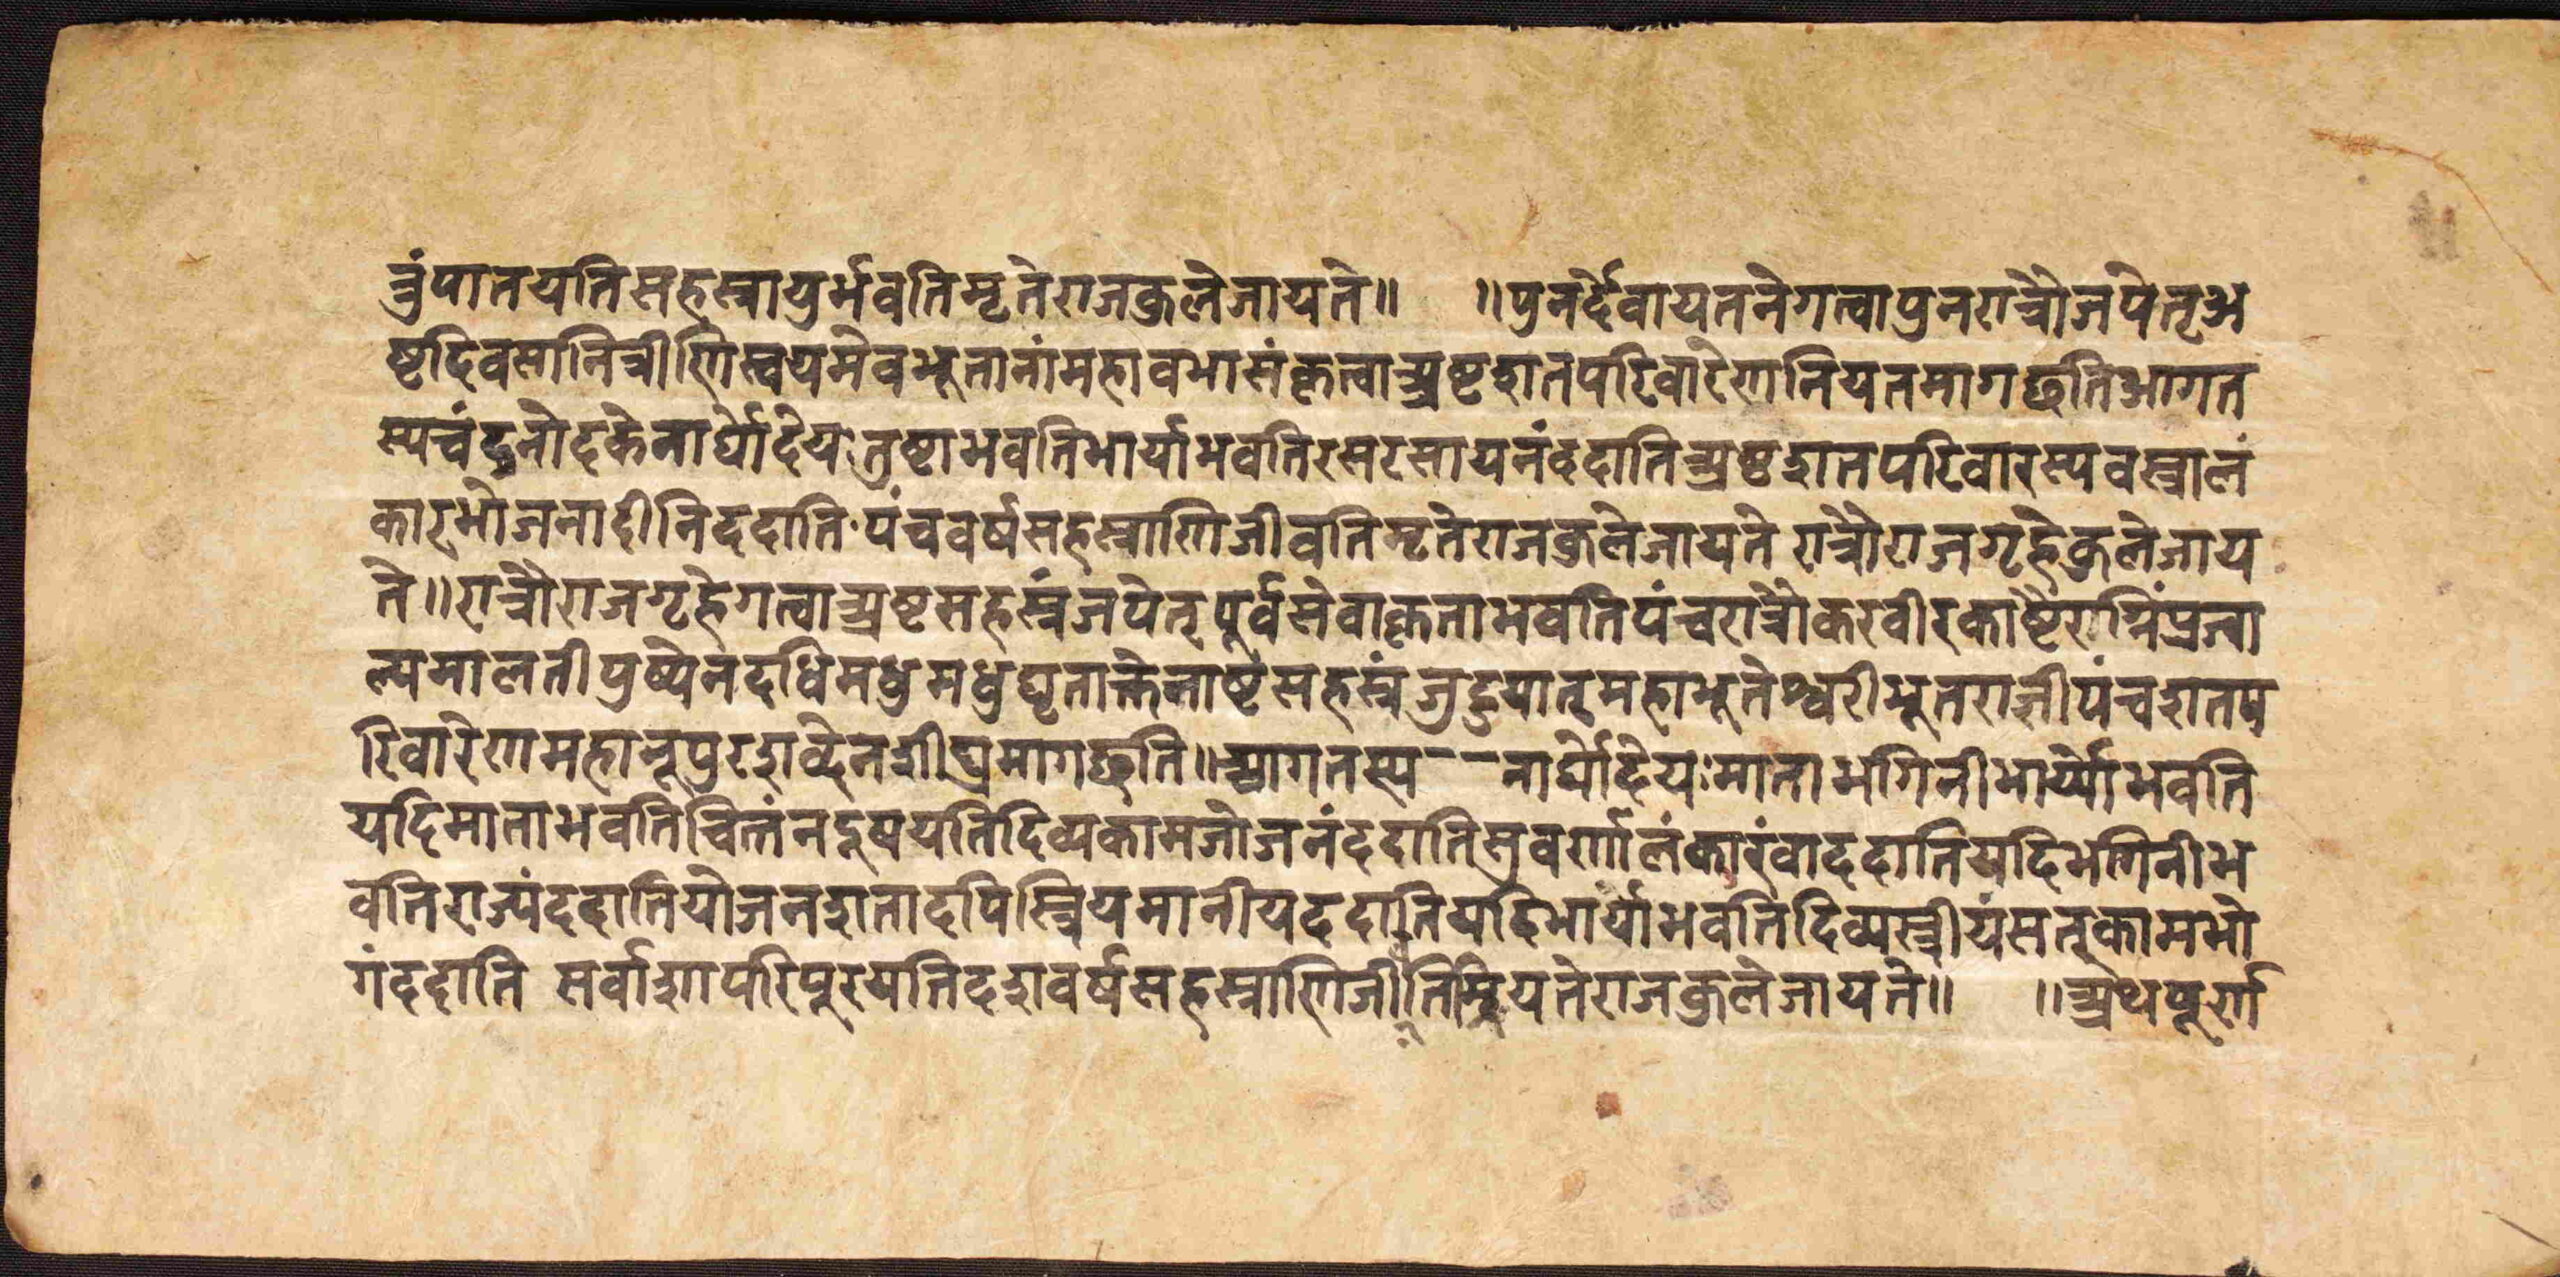 त्रुंपातयतिसहस्रायुर्भवतिमृतेराजकुलेजायते॥ ॥पुनर्द्देवायतनेगत्वापुनरात्रौजपेत्अ
ष्टदिवसानित्रीणिस्वयमेवभूतानांमहावभासंकृत्वाअष्टशतपरिवारेणनियतमागछतिआगत
स्यचंदनोदकेनार्घोदेयःतुष्टाभवतिभार्याभवतिरसरसायनंददातिअष्टशतपरिवारस्यवस्त्रालं
कारभोजनादीनिददाति॰पंचवर्षसहस्राणिजीवतिमृतेराजकुलेजायते रात्रौराजगृहेकुलेजाय
ते॥रात्रौराजगृहेगत्वाअष्टसहस्रंजपेत्पूर्वसेवाकृताभवतिपंचरात्रौकरवीरकाष्टैरग्निंप्रज्वा
ल्यमालतीपुष्पेनदधिमधुमधुघृताक्तेनाष्टंसहस्रंजुहुयात्महाभूतेश्वरीभूतराज्ञीपंचशतप
रिवारेणमहानूपुरशब्देनशीघ्रमागछति॥आगतस्य--नार्घोदेयःमाताभगिनीभार्य्याभवति
यदिमाताभवतिचित्तंनदूषयतिदिव्यकामजोजनंददातिसुवर्णालंकारंवाददातियदिभगिनीभ
वतिराज्यंददातियोजनशतादपिस्त्रियमानीयददातियदिभार्याभवतिदिव्यस्त्रीयंसत्कामभो
गंददाति सर्वाशापरिपूरयतिदशवर्षसहस्राणिजीतिम्रियतेराजकुलेजायते॥ ॥अथपूर्णा